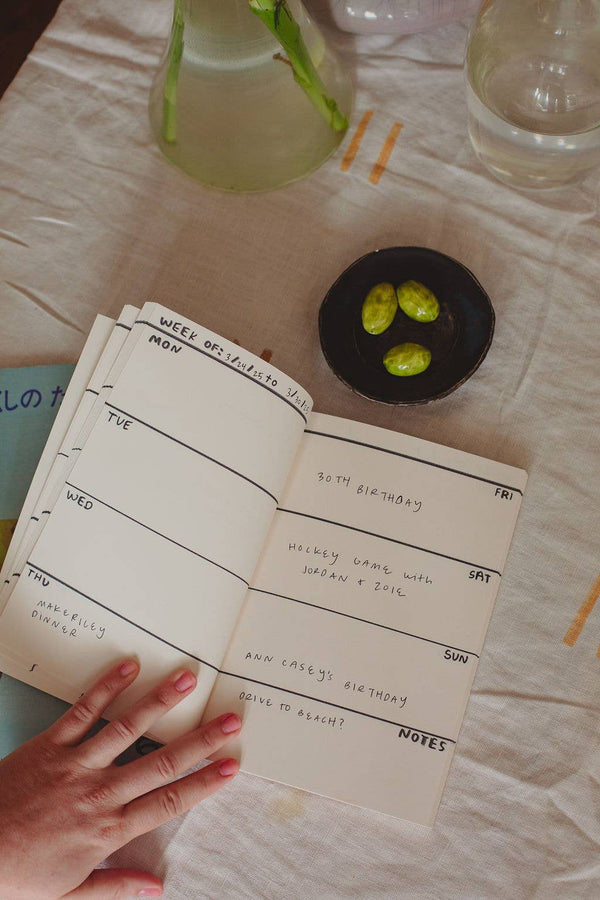 WEEK OF: 3/24/25 to 3/30/25
MON
TUE
WED
THU
MAKE RILEY
DINNER
FRI
30TH BIRTHDAY
SAT
HOCKEY GAME with
JORDAN + ZOIE
SUN
ANN CASEY'S BIRTHDAY
NOTES
DRIVE TO BEACH?
しの